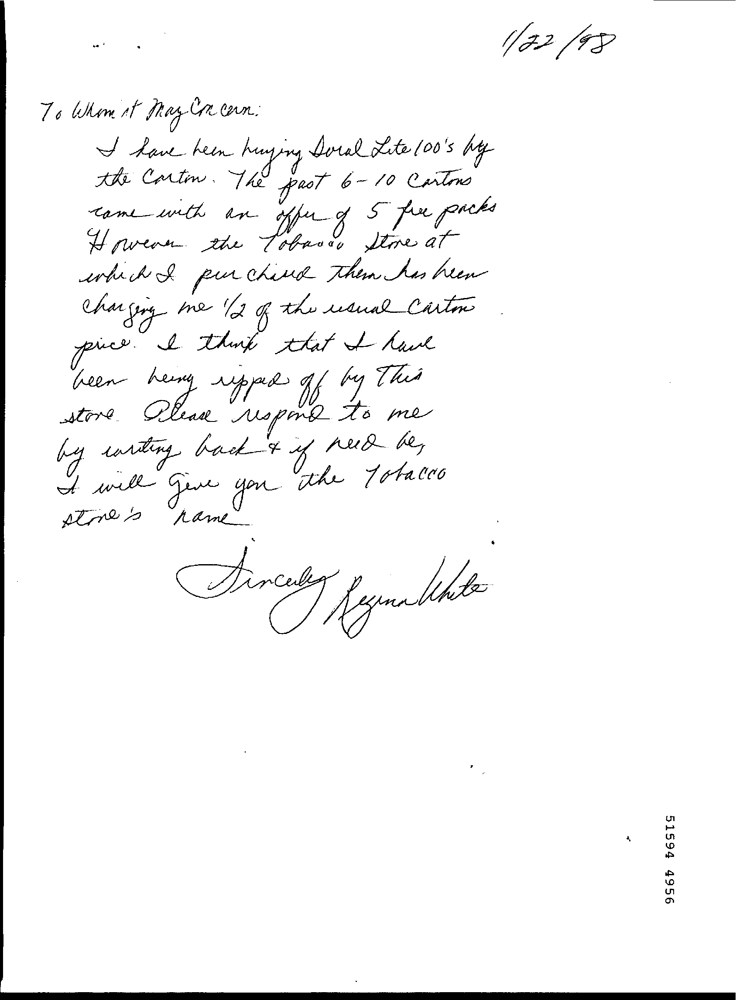 1/22/98
To Whom it May Concern:
I have been buying Doral Lite 100's by
the Carton. The past 6-10 Cartons
came with an offer of 5 free packs
However the Tobacco Store at
which I purchised them has been
charging me 1/2 of the usual Carton
price. I think that I have
been being ripped off by This
store. Please respond to me
by writing back & if need be,
I will give you the Tobacco
store's name
Sincerely Regina White
51594 4956